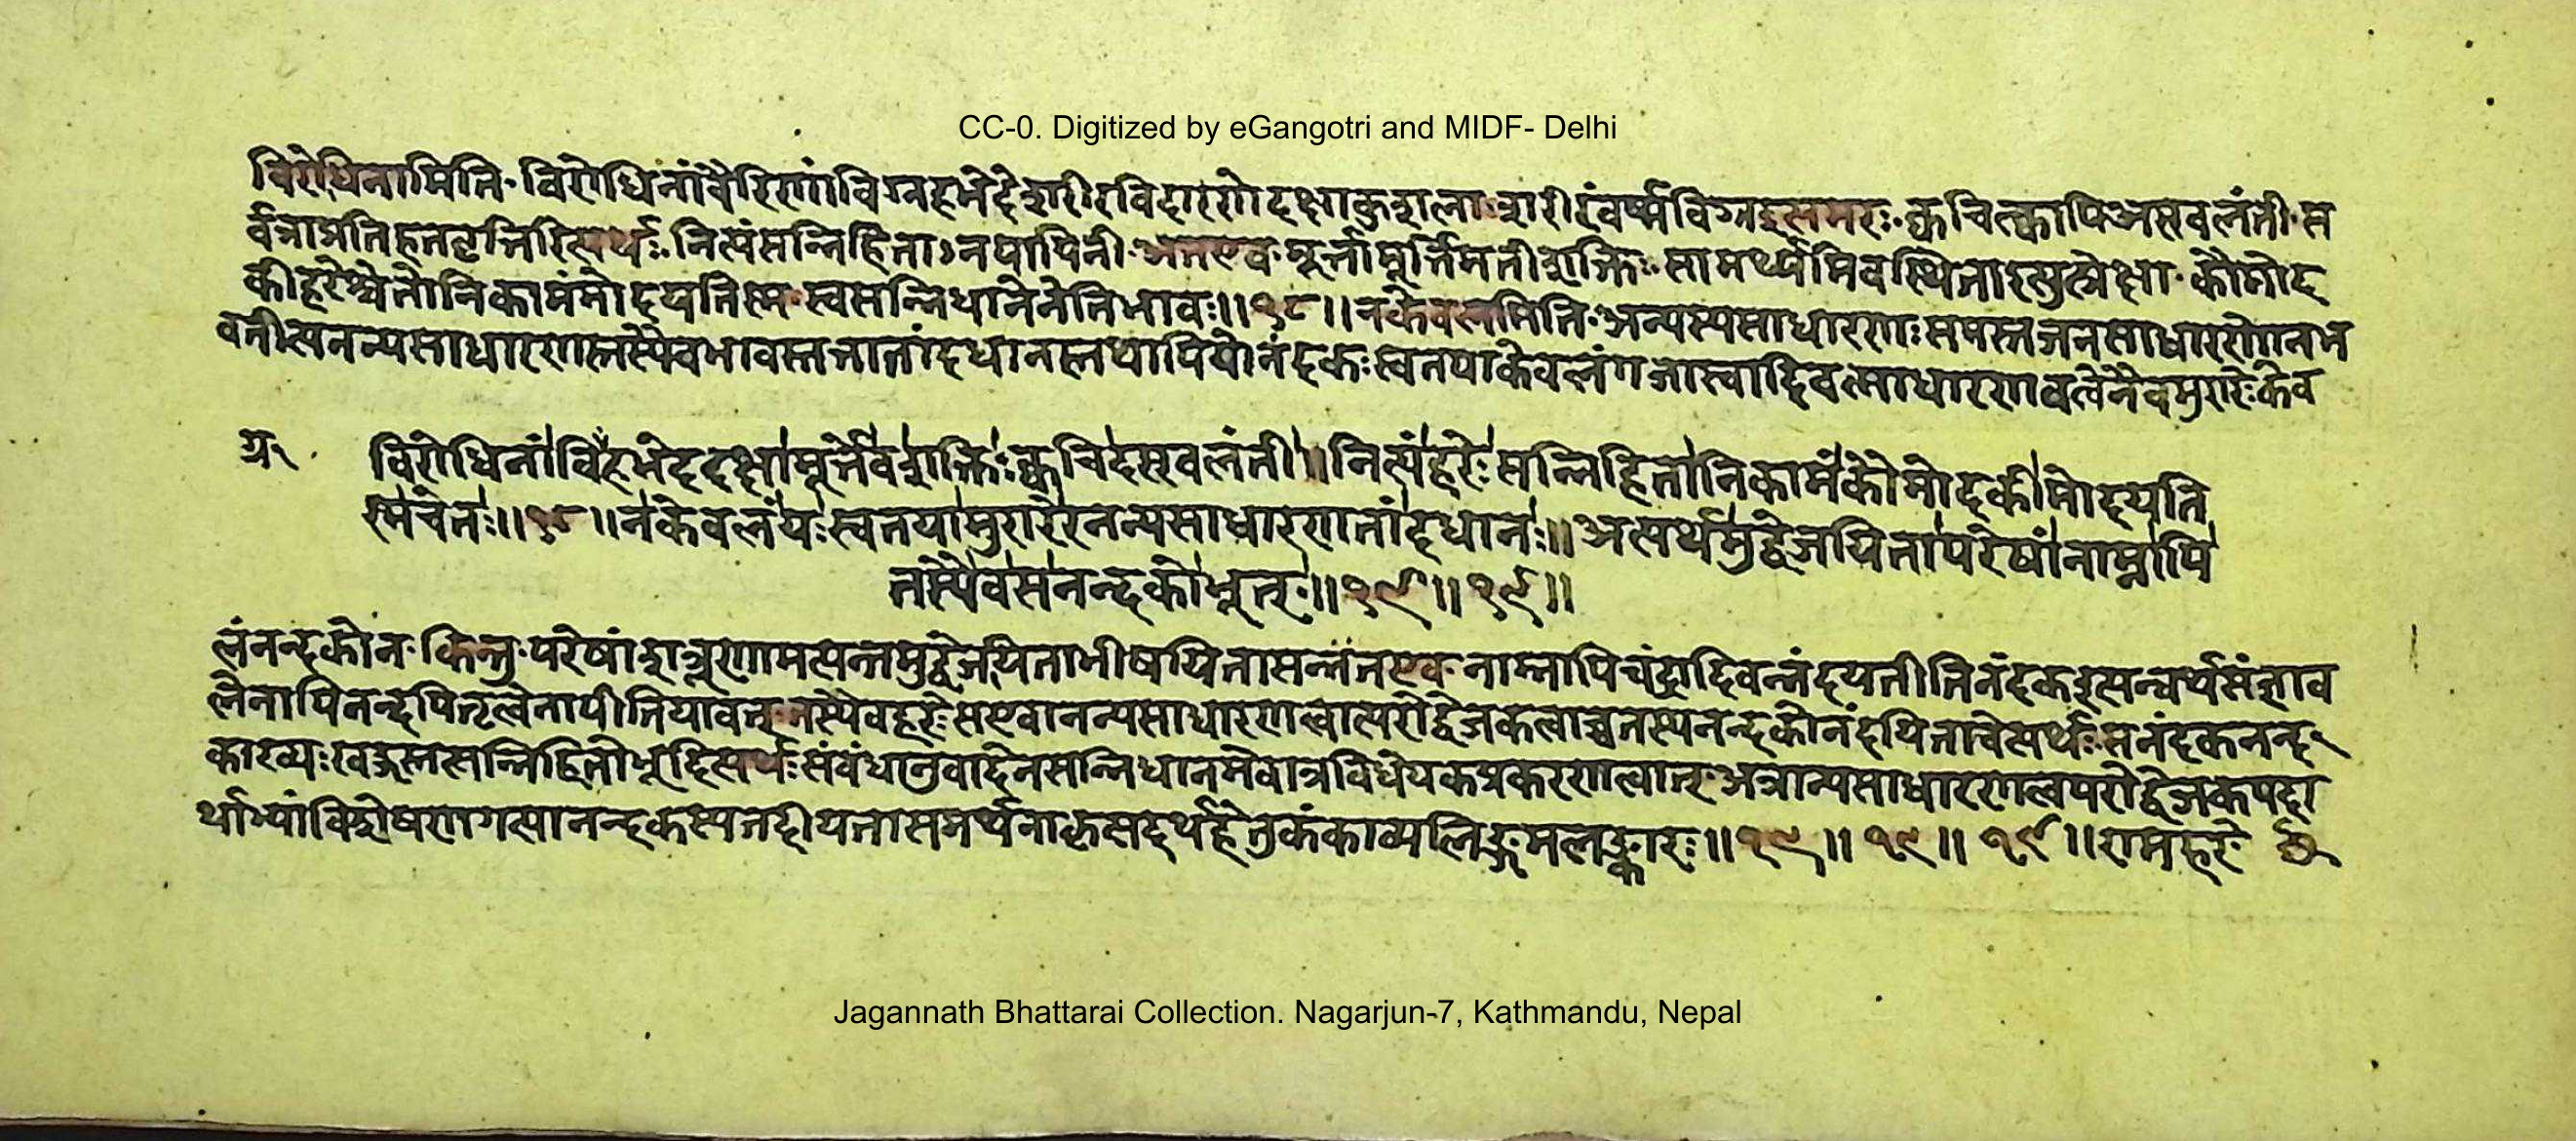 CC-0. Digitized by eGangotri and MIDF- Delhi
विरोधिनामिति विरोधिनांवैरिणांविग्रहभेदेशरीरविदारणेदक्षाकुशला शरीरंवर्ष्मविग्रहइत्यमरः क्वचित्क्वापिअस्खलंती स
र्वत्राप्रतिहतवृत्तिरित्यर्थः नित्यंसन्निहिताऽनपायिनी अतएव मूर्त्तामूर्त्तिमतीशक्तिः सामर्थ्यमिवस्थितेत्युत्प्रेक्षा कौमोद
कीहरेश्चेतोनिकामंमोदयतिस्म स्वसन्निधानेनेतिभावः॥१८॥नकेवलमिति अन्यस्यसाधारणः समस्तजनसाधारणोनभ
वतीत्यनन्यसाधारणस्तस्यैवभावस्तत्तातांदधानस्तथापियोनंदकः स्वतयाकेवलंगजास्वादिवत्साधारणवत्वेनैवमुरारेःकेव
विरोधिनांविग्रहभेददक्षामूर्त्तेवशक्तिः क्वचिदस्खलंती॥नित्यंहरेःसन्निहितानिकामंकौमोदकीमोदयति
स्मचेतः॥१८॥नकेवलंयःस्वतयामुरारेरनन्यसाधारणतांदधानः॥अत्यर्थमुद्वेजयितापरेषांनाम्नापि
तस्यैवसनन्दकोभूत्॥१९॥१९॥
लंनन्दकोन किन्तु परेषांशत्रूणामत्यन्तमुद्वेजयिताभीषयितासन्तंतएव नाम्नापिचंद्रादिवन्नंदयतीतिनंदकइत्यन्वर्थसंज्ञाव
त्वेनापिनन्दपितृत्वेनापीतियावत् तस्यैवहरेःसएवानन्यसाधारणत्वात्परोद्वेजकत्वाच्चतस्यनन्दकोनंदयिताचेत्यर्थः सनंदकनन्द
काख्यः खड्गस्तसन्निहितोभूदित्यर्थः संबंधानुवादेनसन्निधानमेवात्रविधेयकप्रकरणत्वात् अत्रान्यसाधारणत्वपरोद्वेजकपदा
र्थाभ्यांविशेषणगत्यानन्दकस्यतदीयतासमर्थनाकृत्पदर्थहेतुकंकाव्यलिङ्गमलङ्कारः॥१९॥१९॥१९॥रामहरे
Jagannath Bhattarai Collection. Nagarjun-7, Kathmandu, Nepal